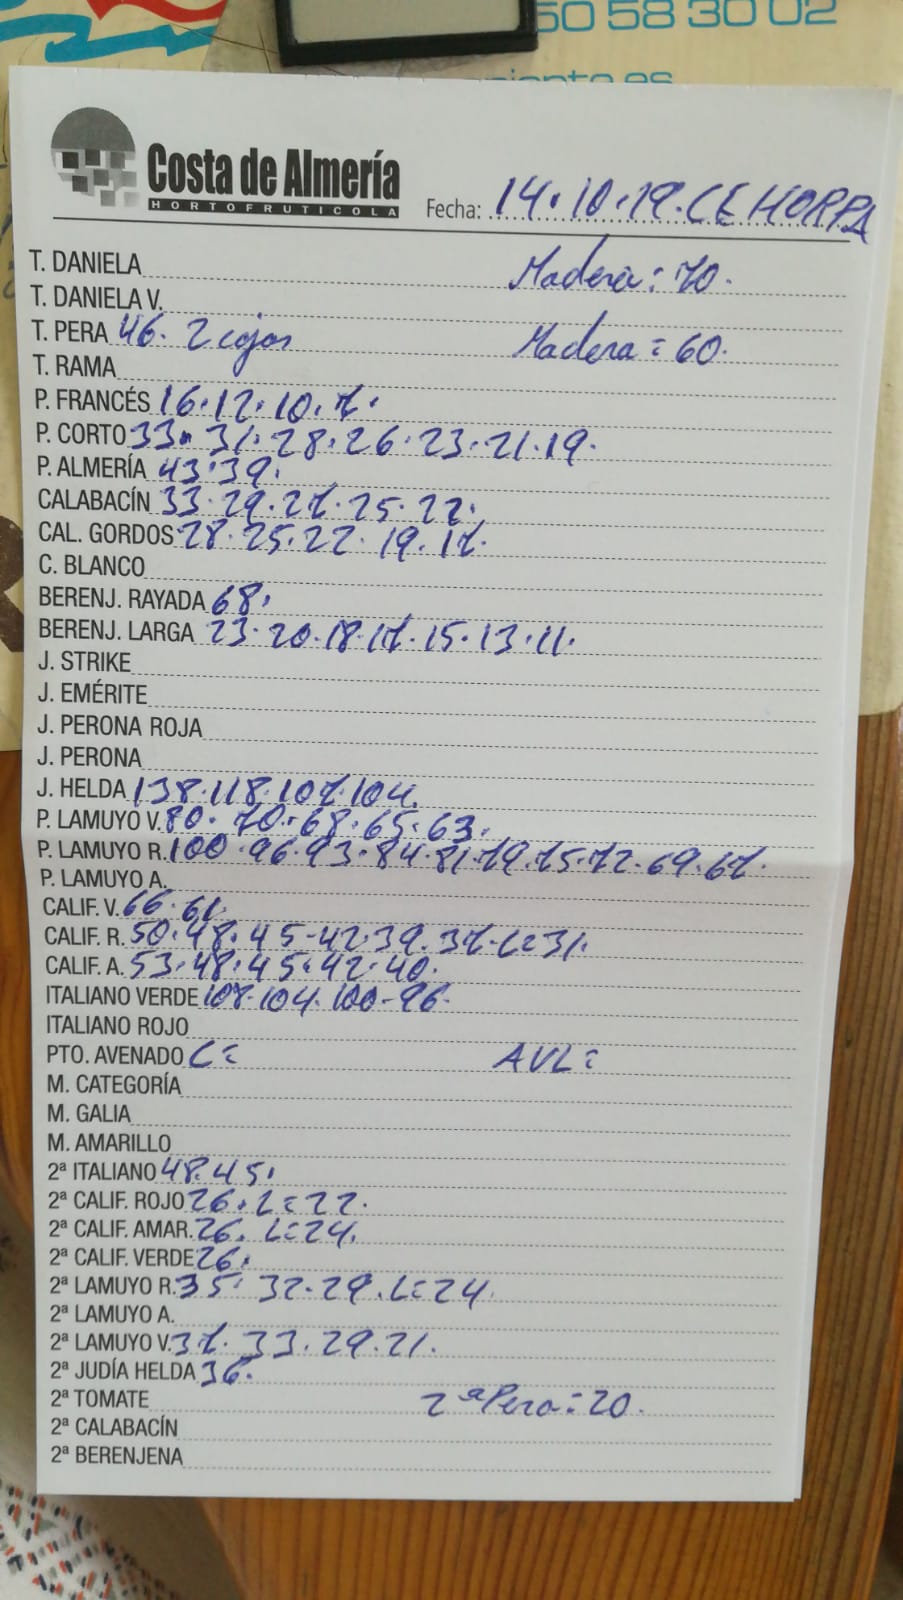 50 58 30 02
Costa de Almería
HORTOFRUTICOLA
Fecha: 14.10.19.CEHORPA
T. DANIELA Madera: 70.
T. DANIELA V.
T. PERA 46. 2 cajas Madera = 60.
T. RAMA
P. FRANCÉS 16.12.10.7.
P. CORTO 33. 31. 28. 26. 23. 21. 19.
P. ALMERÍA 43.39.
CALABACÍN 33.29.27.25.22.
CAL. GORDOS 28.25.22.19.17.
C. BLANCO
BERENJ. RAYADA 68.
BERENJ. LARGA 23.20.18.17.15.13.11.
J. STRIKE
J. EMÉRITE
J. PERONA ROJA
J. PERONA
J. HELDA 138.118.107.104.
P. LAMUYO V. 80. 70. 68. 65. 63.
P. LAMUYO R. 100.96.93.84.81.79.75.72.69.67.
P. LAMUYO A.
CALIF. V. 66.61.
CALIF. R. 50.48.45-42.39.37.L=31.
CALIF. A. 53.48.45.42.40.
ITALIANO VERDE 108.104.100-96.
ITALIANO ROJO
PTO. AVENADO C= AVL=
M. CATEGORÍA
M. GALIA
M. AMARILLO
2ª ITALIANO 48.45.
2ª CALIF. ROJO 26. L=22.
2ª CALIF. AMAR. 26. L=24.
2ª CALIF. VERDE 26.
2ª LAMUYO R. 35. 32.29.L=24.
2ª LAMUYO A.
2ª LAMUYO V. 37. 33. 29.21.
2ª JUDÍA HELDA 36.
2ª TOMATE 2ª Pera = 20.
2ª CALABACÍN
2ª BERENJENA